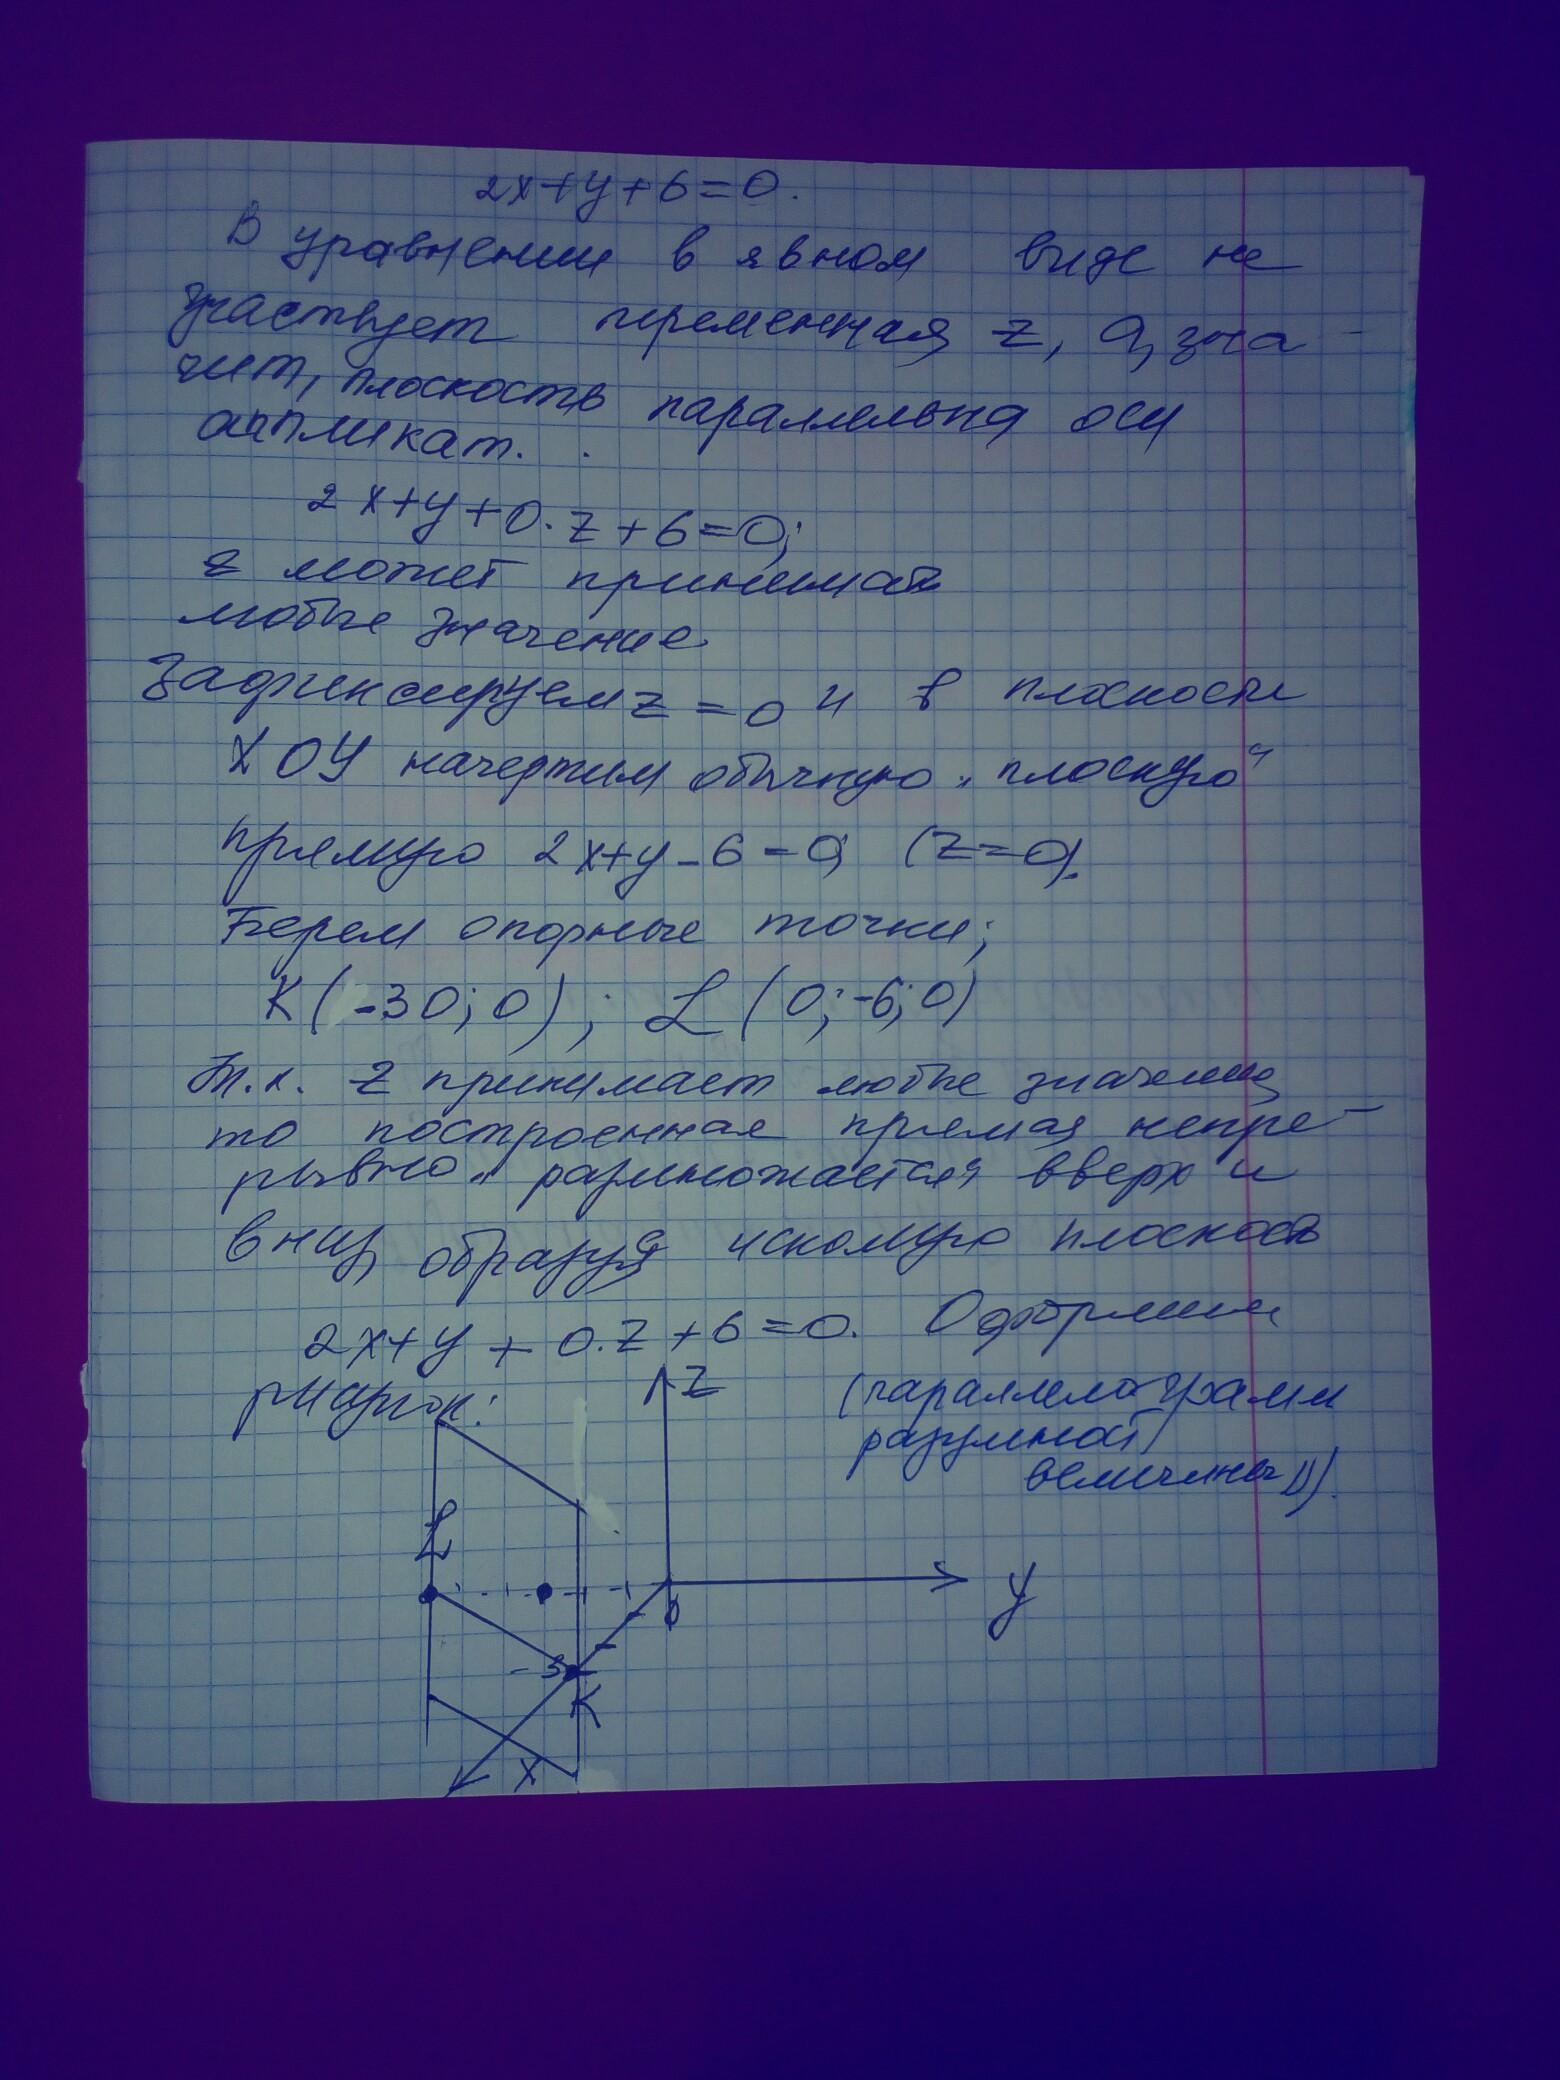 2x+y+6=0.
В уравнении в явном виде не
участвует переменная z, а, зна-
чит, плоскость параллельна оси
аппликат.
2x+y+0·z+6=0;
z может принимать
любые значение
Зафиксируем z=0 и в плоскости
XOY начертим обычную „плоскую“
прямую 2x+y-6=0 (z=0).
Берем опорные точки;
K(-30;0); L(0;-6;0)
Т.к. z принимает любые значения
то построенная прямая непре-
рывно „размножается“ вверх и
вниз, образуя искомую плоскость
2x+y+0.z+6=0. Оформим
рисунок:
(параллелограмм
разумной
величины)).
z
L
y
0
-3
K
x